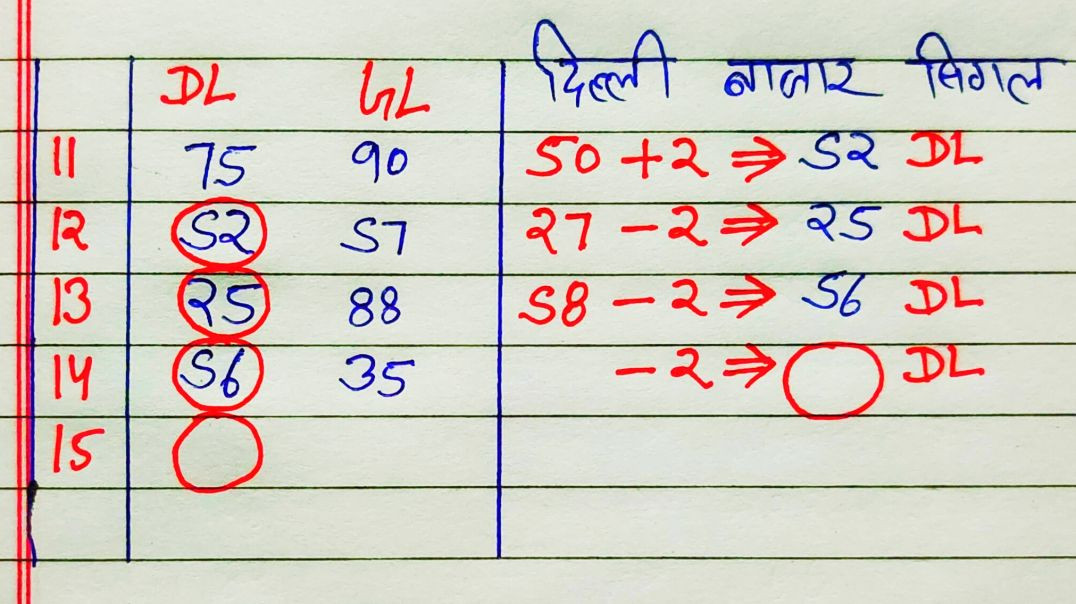 DL GL दिल्ली बाजार सिगल
11 75 90 50 + 2 ⇒ 52 DL
12 52 57 27 - 2 ⇒ 25 DL
13 25 88 58 - 2 ⇒ 56 DL
14 56 35 - 2 ⇒ DL
15